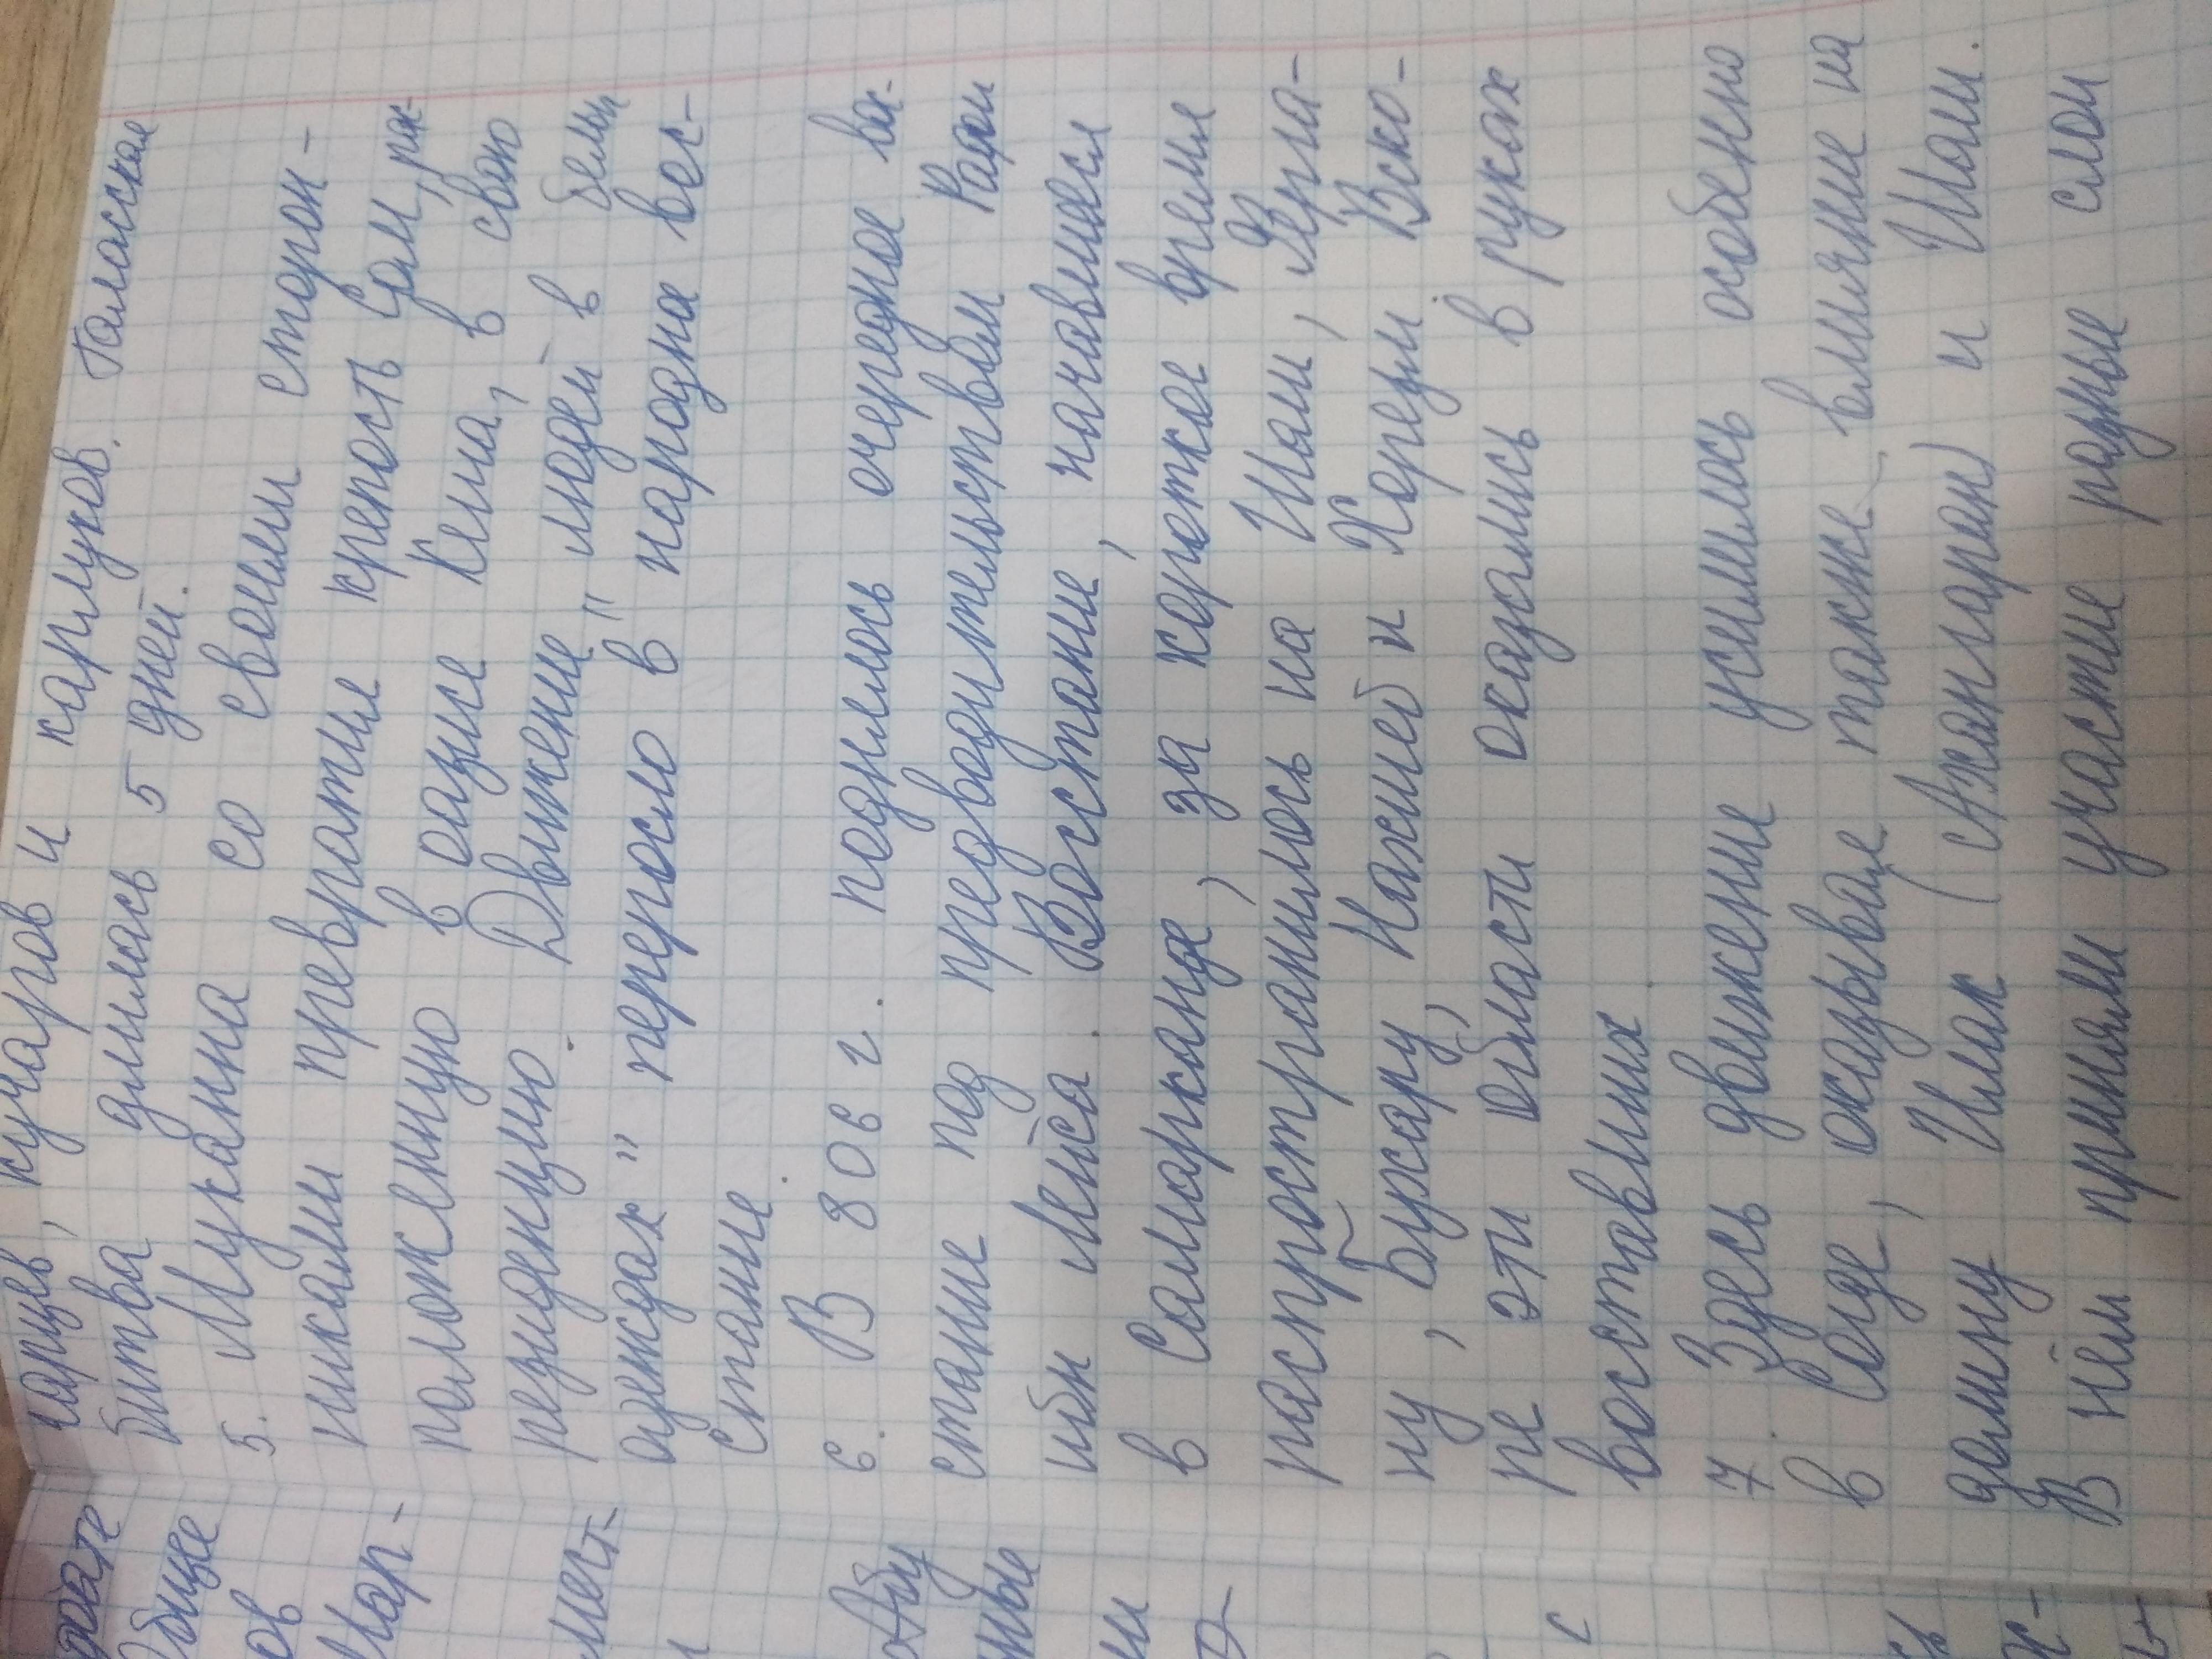 чарцев, кучаров и карлуков. Таласская
битва длилась 5 дней.
5. Муканна со своими сторон-
никами превратив крепость Сам, рас-
положенную в оазисе Кеша, в свою
резиденцию. Движение "людей в белых
одеждах" переросло в народное вос-
стание.
6. В 806 г. поднялось очередное вос-
стание под предводительством Рафи
ибн Лейса. Восстание, начавшееся
в Самарканде, за короткое время
распространилось на Шаш, Ферга-
ну, Бухару, Нахшеб и Хорезм. Вско-
ре эти области оказались в руках
восставших
7. Здесь движение усилилось особено
в Согде, оказывая также влияние на
долину Илак (Ахангаран) и Шаш.
В нём приняли участие разные слои
дате
Общее
ов
Мар-
мест-
и
Абу
ные
с